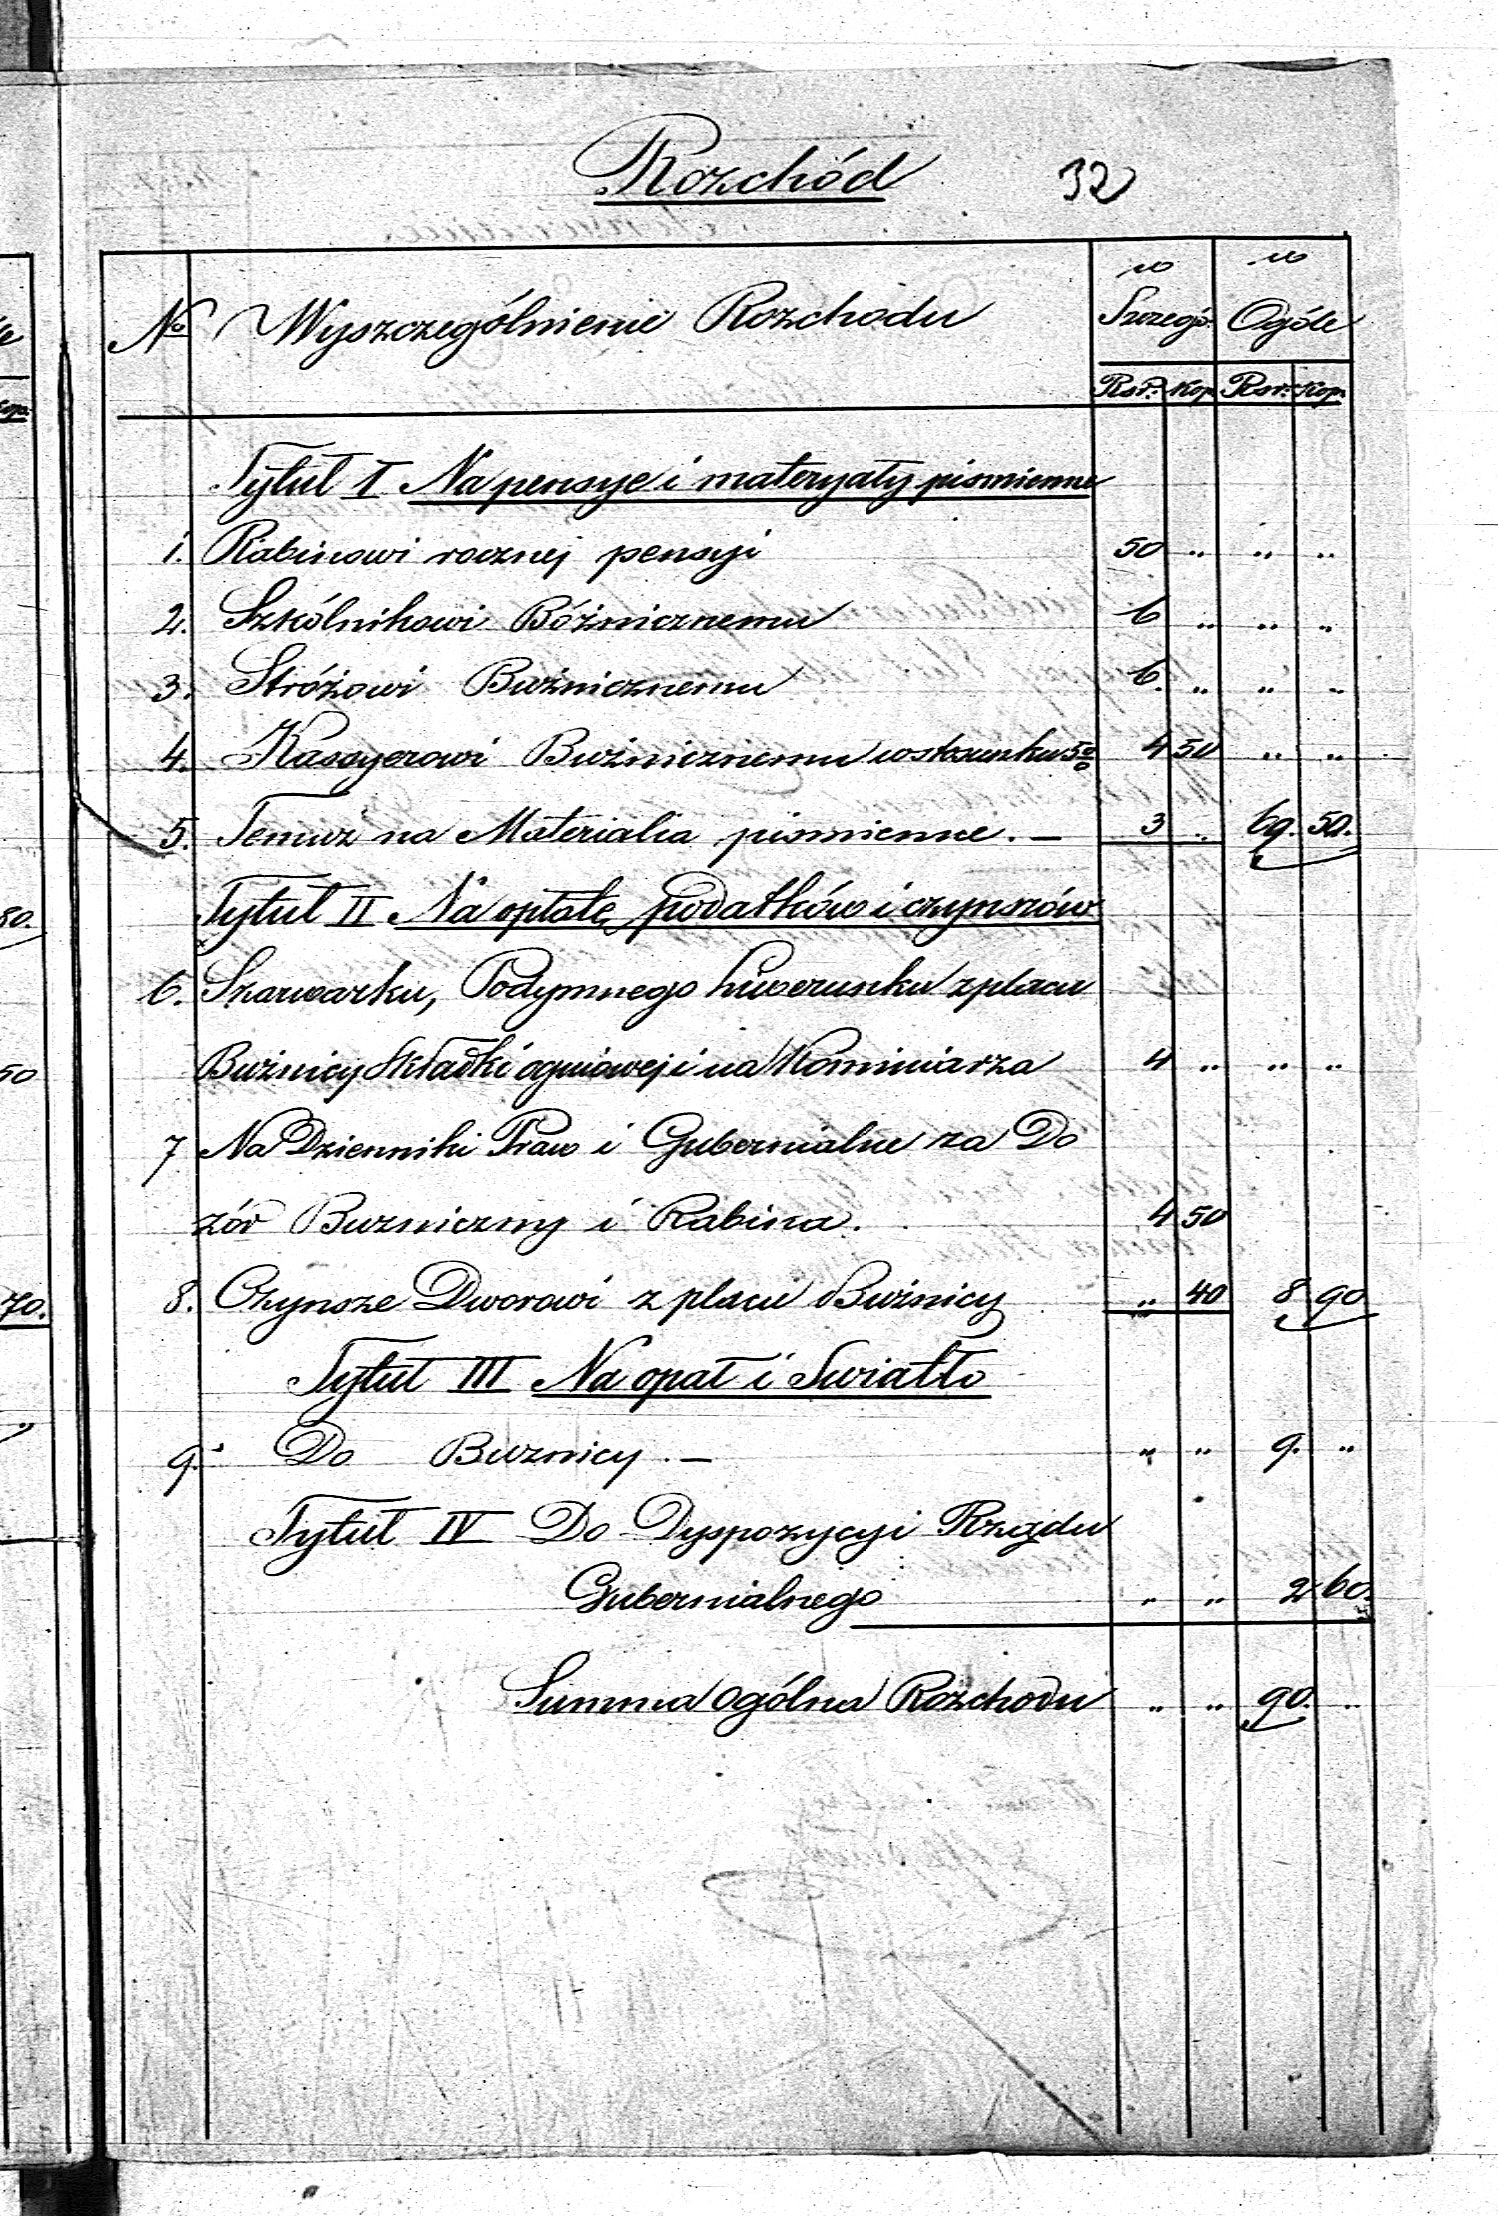 Rozchód 32
w w
№ Wyszczególnienie Rozchodu Szczegó. Ogóle
Rsr. Kop. Rsr. Kop.
Tytuł I Na pensye i materyały piśmienne
1. Rabinowi rocznej pensyi 50 " " "
2. Szkólnikowi Bóżnicznemu 6 " " "
3. Stróżowi Bużnicznemu 6. " " "
4. Kassyerowi Bużnicznemu w stosunku 5% 4 50 " "
5. Temuż na Materialia piśmienne. — 3 " 69. 50.
Tytuł II Na opłatę podatków i czynszów
80.
6. Szarwarku, Podymnego liwerunku z placu
Bużnicy Składki ogniowej i na Kominiarza 4 " " "
50
7 Na Dzienniki Praw i Gubernialne za Do
zór Buzniczny i Rabina. 4 50
8. Czynsze Dworowi z placu Bużnicy " 40 8 90
70.
Tytuł III Na opał i Swiatło
9. Do Buznicy. — " " 9. "
Tytuł IV Do Dyspozycyi Rządu
Gubernialnego " " 2 60.
Summa ogólna Rozchodu " " 90. "